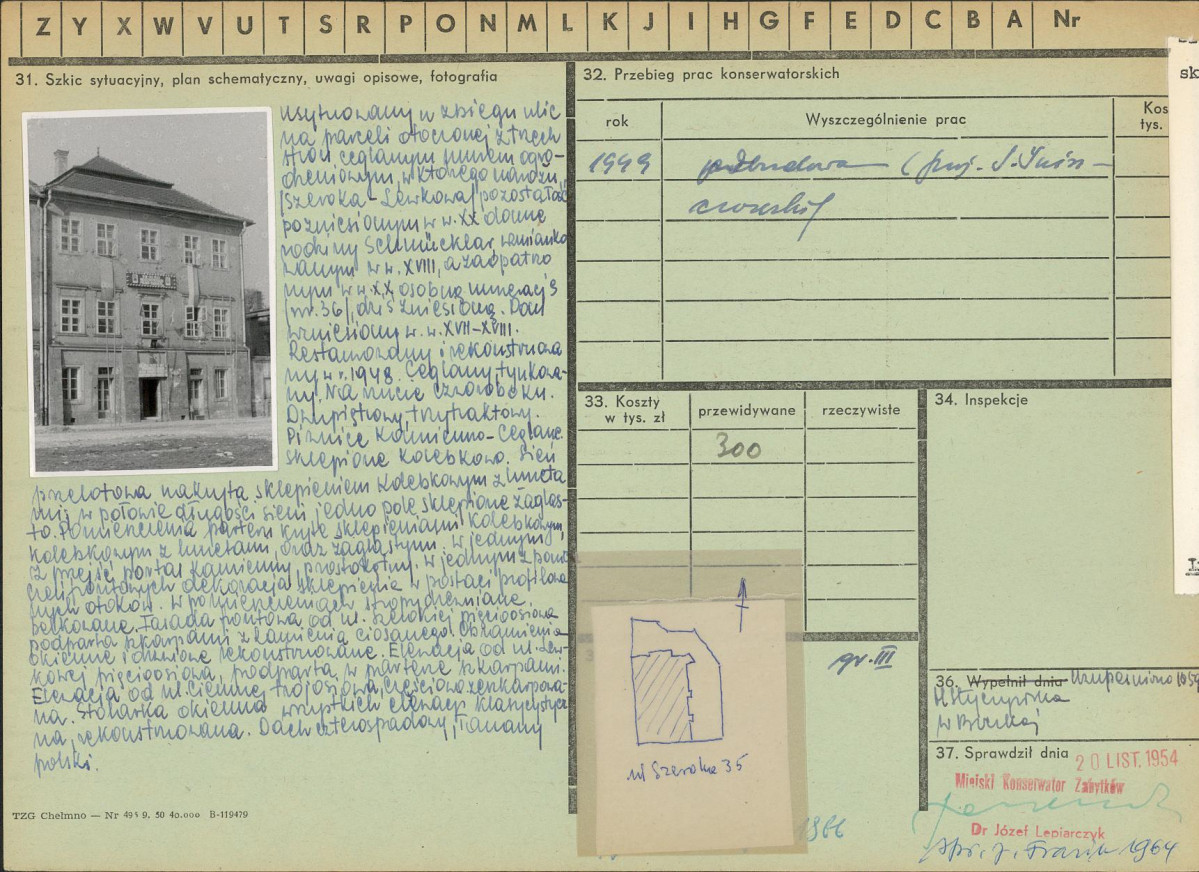 Z Y X W V U T S R P O N M L K J I H G F E D C B A Nr
31. Szkic sytuacyjny, plan schematyczny, uwagi opisowe, fotografia
usytuowany w zbiegu ulic
na parceli otoczonej z trzech
stron ceglanym murem ogro-
dzeniowym, w którego narożu
/Szeroka - Lewkowa/ pozostałość
po zniesionym w w. XX domu
rodziny Schmücklar, wzmianko
wanym w w. XVIII, a zaopatrzo
nym w w. XX osobną numeracją
/nr. 36/, dziś zniesioną. Dom
wzniesiony w w. XVII-XVIII.
Restaurowany i rekonstruowa
ny w r. 1948. Ceglany, tynkowa-
ny. Na rzucie czworoboku.
Dwupiętrowy, trzytraktowy.
Piwnice kamienno-ceglane
sklepione kolebkowo. Sień
przelotowa nakryta sklepieniem kolebkowym z luneta
mi, w połowie długości sieni jedno pole sklepione żaglas-
to. Pomieszczenia parteru kryte sklepieniami kolebkowym,
kolebkowym z lunetami, oraz żaglastym. w jednym
z przejść portal kamienny, prostokątny. w jednym z pomi
eszczeń frontowych dekoracja sklepienia w postaci profilowa
nych otoków. w pomieszczeniach stropy drewniane,
belkowane. Fasada frontowa od ul. Szerokiej pięcioosiowa
podparta szkarpami z kamienia ciosanego. Obramienia
okienne i drzwiowe rekonstruowane. Elewacja od ul. Lew-
kowej pięcioosiowa, podparta w parterze szkarpami.
Elewacja od ul. Ciemnej trójosiowa, częściowo zeszkarpowa-
na. Stolarka okienna wszystkich elewacji klasycystycz
na, rekonstruowana. Dach czterospadowy, łamany
polski.
TZG Chełmno — Nr 495 9. 50 40.000 B-119479
32. Przebieg prac konserwatorskich
rok
Wyszczególnienie prac
Kos
tys.
1949 przebudowa (proj.
33. Koszty
w tys. zł
przewidywane
rzeczywiste
300
gr. III
ul Szeroka 35
1986
34. Inspekcje
36. Wypełnił dnia Uzupełniono 1959
37. Sprawdził dnia
20 LIST. 1954
Miejski Konserwator Zabytków
Dr Józef Lepiarczyk
1964
sk